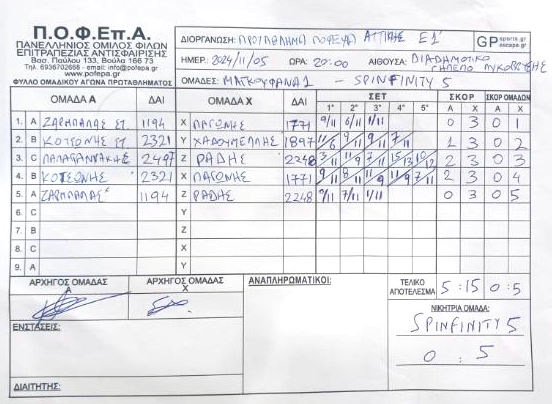 Π.Ο.Φ.Επ.Α.
ΠΑΝΕΛΛΗΝΙΟΣ ΟΜΙΛΟΣ ΦΙΛΩΝ
ΕΠΙΤΡΑΠΕΖΙΑΣ ΑΝΤΙΣΦΑΙΡΙΣΗΣ
Βασ. Παύλου 133, Βούλα 166 73
Τηλ. 6936702668 - email: info@pofepa.gr
www.pofepa.gr
ΦΥΛΛΟ ΟΜΑΔΙΚΟΥ ΑΓΩΝΑ ΠΡΩΤΑΘΛΗΜΑΤΟΣ
ΔΙΟΡΓΑΝΩΣΗ: ΠΡΩΤΑΘΛΗΜΑ ΠΟΦΕΠΑ ΑΤΤΙΚΗΣ Ε1'
GP sports.gr
ΗΜΕΡ: 2024/11/05 ΩΡΑ: 20:00 ΑΙΘΟΥΣΑ: ΔΙΑΔΗΜΟΤΙΚΟ
ΓΗΠΕΔΟ ΛΥΚΟΒΡΥΣΗΣ
ΟΜΑΔΕΣ: ΜΑΓΚΟΥΦΑΝΑ 1 - SPINFINITY 5
ΟΜΑΔΑ Α ΔΑΙ ΟΜΑΔΑ Χ ΔΑΙ ΣΕΤ ΣΚΟΡ ΣΚΟΡ ΟΜΑΔΩΝ
1° 2° 3° 4° 5° Α Χ Α Χ
1. Α ΖΑΡΜΠΑΛΑΣ ΣΤ. 1194 Χ ΠΑΓΩΝΗΣ 1771 9/11 6/11 9/11 0 3 0 1
2. Β ΚΟΤΣΩΝΗΣ 2321 Υ ΧΑΔΟΥΜΕΛΛΗΣ 1897 11/6 9/11 9/11 7/11 1 3 0 2
3. C ΠΑΠΑΓΙΑΝΝΑΚΗΣ 2497 Ζ ΡΑΔΗΣ 2248 2 3 0 3
4. Β ΚΟΤΣΩΝΗΣ 2321 Χ ΠΑΓΩΝΗΣ 1771 2 3 0 4
5. Α ΖΑΡΜΠΑΛΑΣ 1194 Ζ ΡΑΔΗΣ 2248 9/11 7/11 1/11 0 3 0 5
6. C Υ
7. Β Ζ
8. C Χ
9. Α Υ
ΑΡΧΗΓΟΣ ΟΜΑΔΑΣ Α ΑΡΧΗΓΟΣ ΟΜΑΔΑΣ Χ ΑΝΑΠΛΗΡΩΜΑΤΙΚΟΙ: ΤΕΛΙΚΟ ΑΠΟΤΕΛΕΣΜΑ 5:15 0:5
ΕΝΣΤΑΣΕΙΣ:
ΝΙΚΗΤΡΙΑ ΟΜΑΔΑ:
SPINFINITY 5
0 : 5
ΔΙΑΙΤΗΤΗΣ: